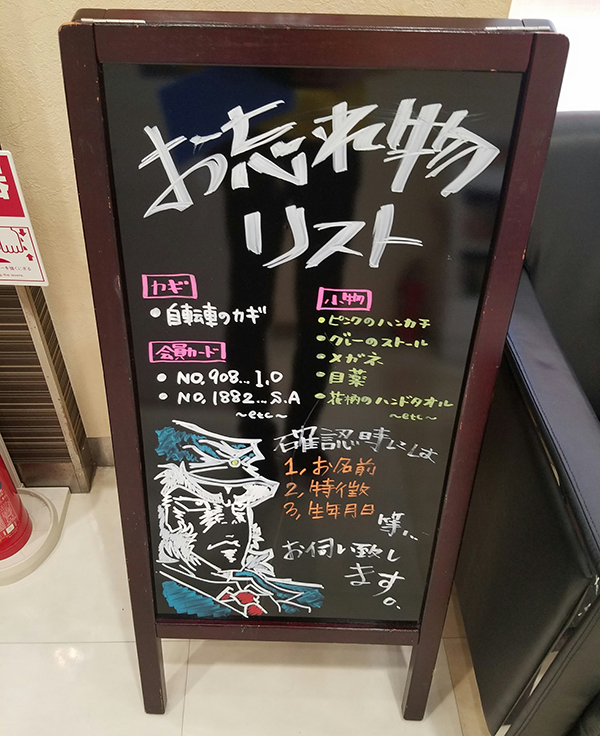 お忘れ物
リスト
カギ
・自転車のカギ
会員カード
・NO,908...I.O
・NO,1882...S.A
～etc～
小物
・ピンクのハンカチ
・グレーのストール
・メガネ
・目薬
・花柄のハンドタオル
～etc～
確認時には
1,お名前
2,特徴
3,生年月日
等に
お伺い致し
ます。